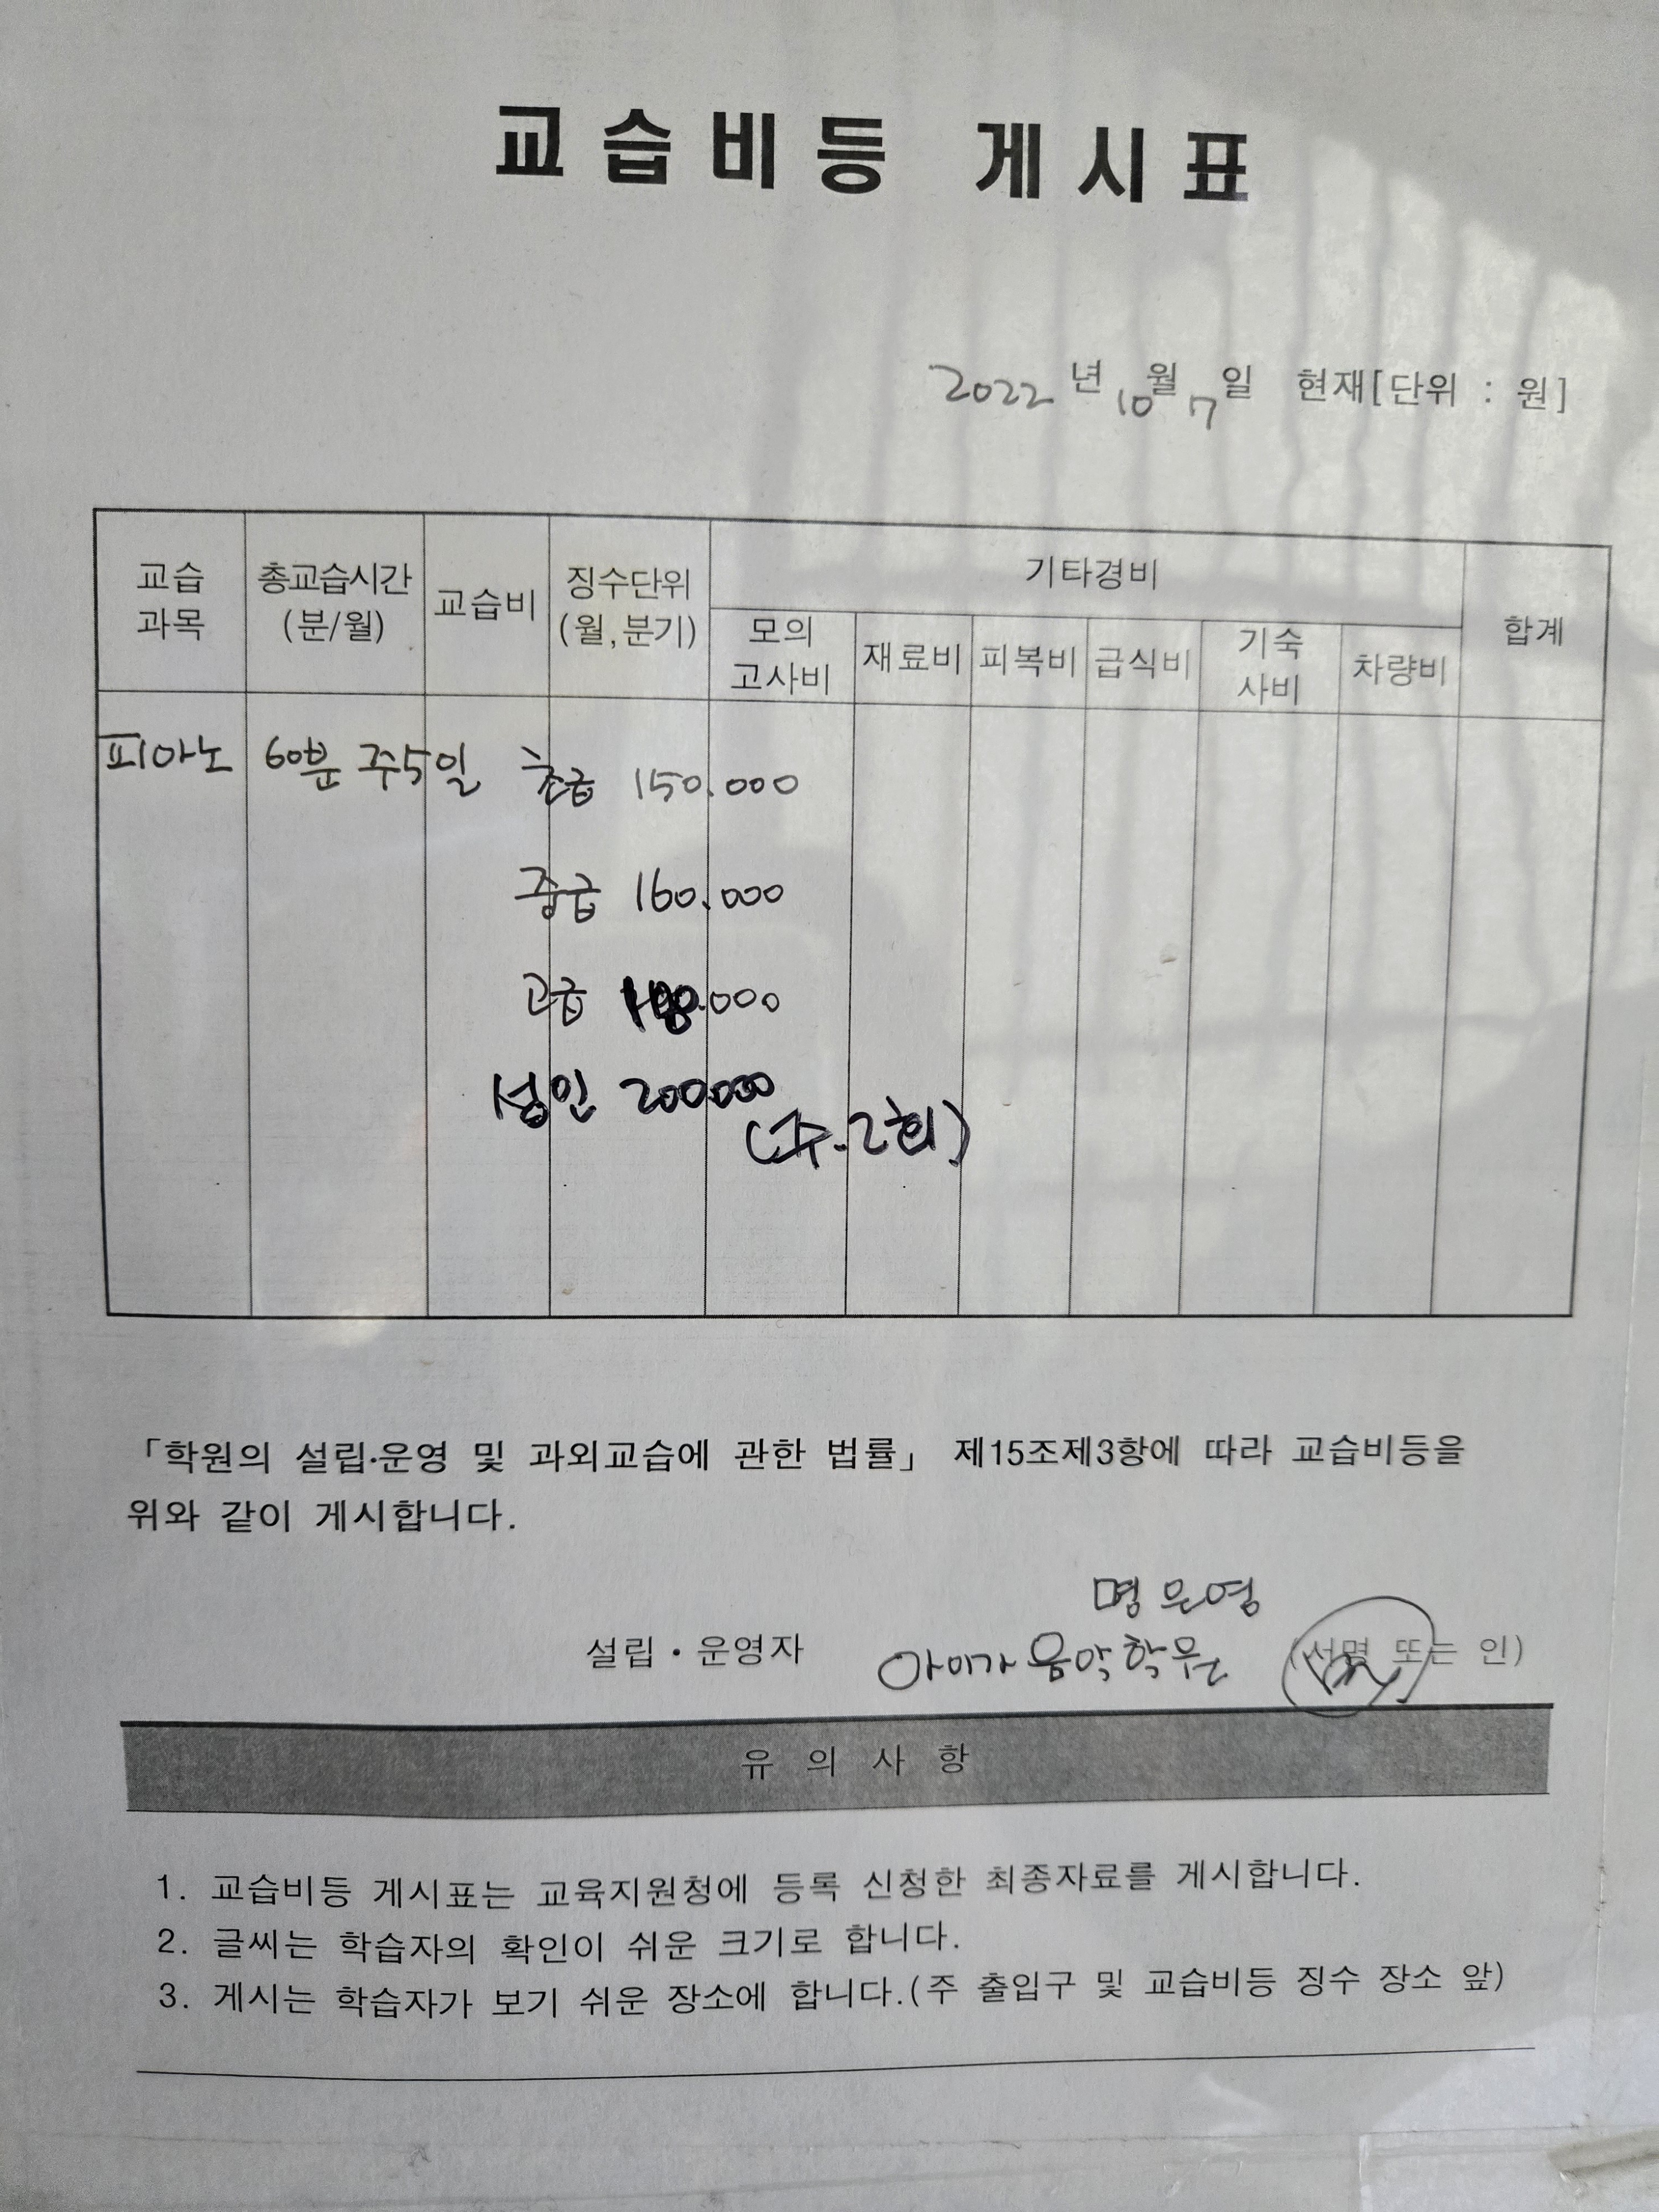 교습비등 게시표
2022년 10월 7일 현재[단위 : 원]
교습과목 총교습시간(분/월) 교습비 징수단위(월,분기) 기타경비 합계
모의고사비 재료비 피복비 급식비 기숙사비 차량비
피아노 60분 주5일 초급 150.000
중급 160.000
고급
성인 200000
(주.2회)
「학원의 설립·운영 및 과외교습에 관한 법률」 제15조제3항에 따라 교습비등을
위와 같이 게시합니다.
명은영
설립·운영자 아이가음악학원 (서명 또는 인)
유의사항
1. 교습비등 게시표는 교육지원청에 등록 신청한 최종자료를 게시합니다.
2. 글씨는 학습자의 확인이 쉬운 크기로 합니다.
3. 게시는 학습자가 보기 쉬운 장소에 합니다.(주 출입구 및 교습비등 징수 장소 앞)